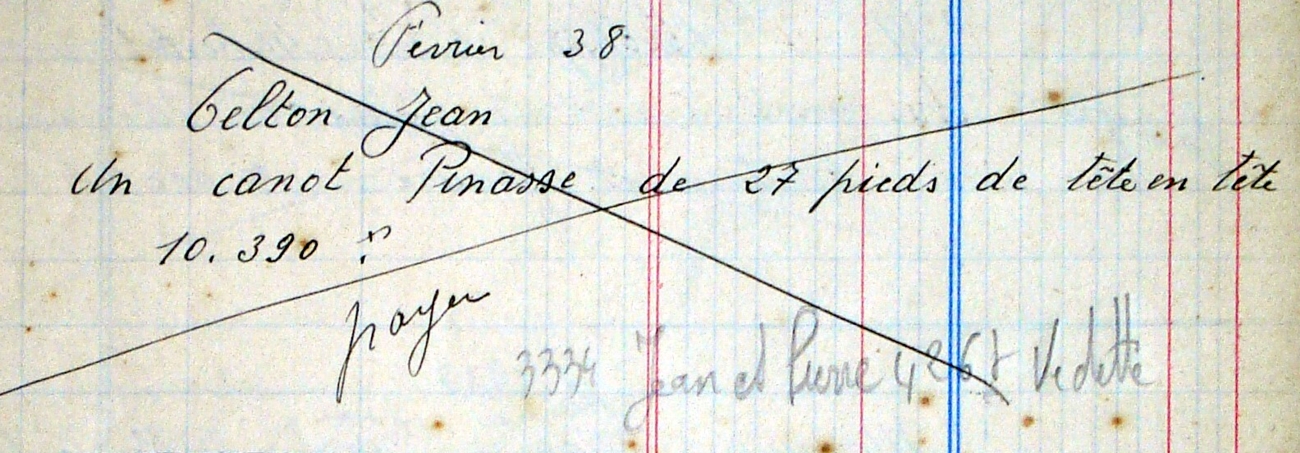 Février 38
Telton Jean
Un canot Pinasse de 27 pieds de tête en tête
10.390 F
payer
3334 Jean et Pierre 4267 Vedette